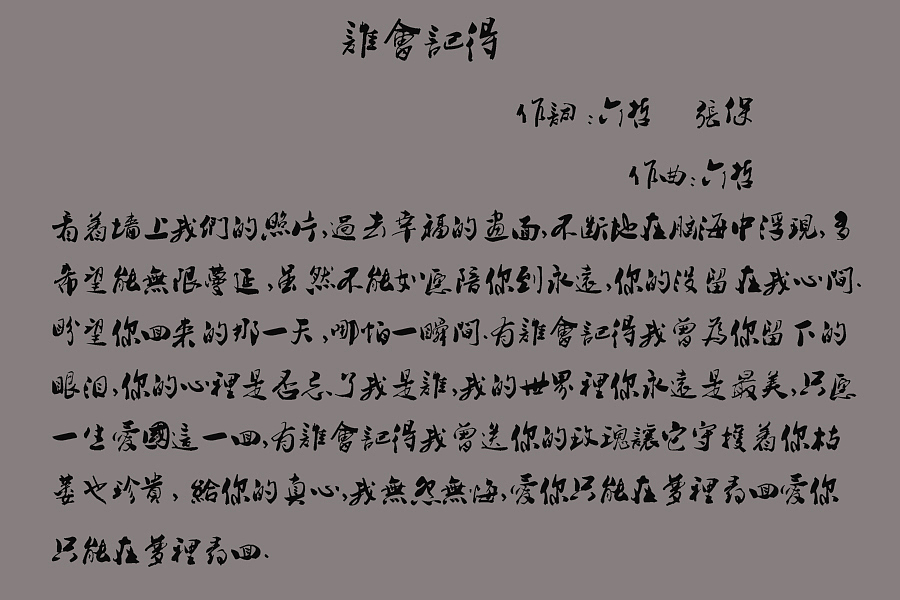 誰會記得
作詞:六哲 張保
作曲:六哲
看着墙上我們的照片,過去幸福的画面,不断地在脑海中浮現,多
希望能無限蔓延,虽然不能如愿陪你到永遠,你的没留在我心間.
盼望你回来的那一天,哪怕一瞬間.有誰會記得我曾為你留下的
眼泪,你的心裡是否忘了我是誰,我的世界裡你永遠是最美,只愿
一生爱國這一回,有誰會記得我曾送你的玫瑰讓它守护着你枯
萎也珍貴,給你的真心,我無怨無悔,爱你只能在梦裡尋回爱你
只能在梦裡尋回.